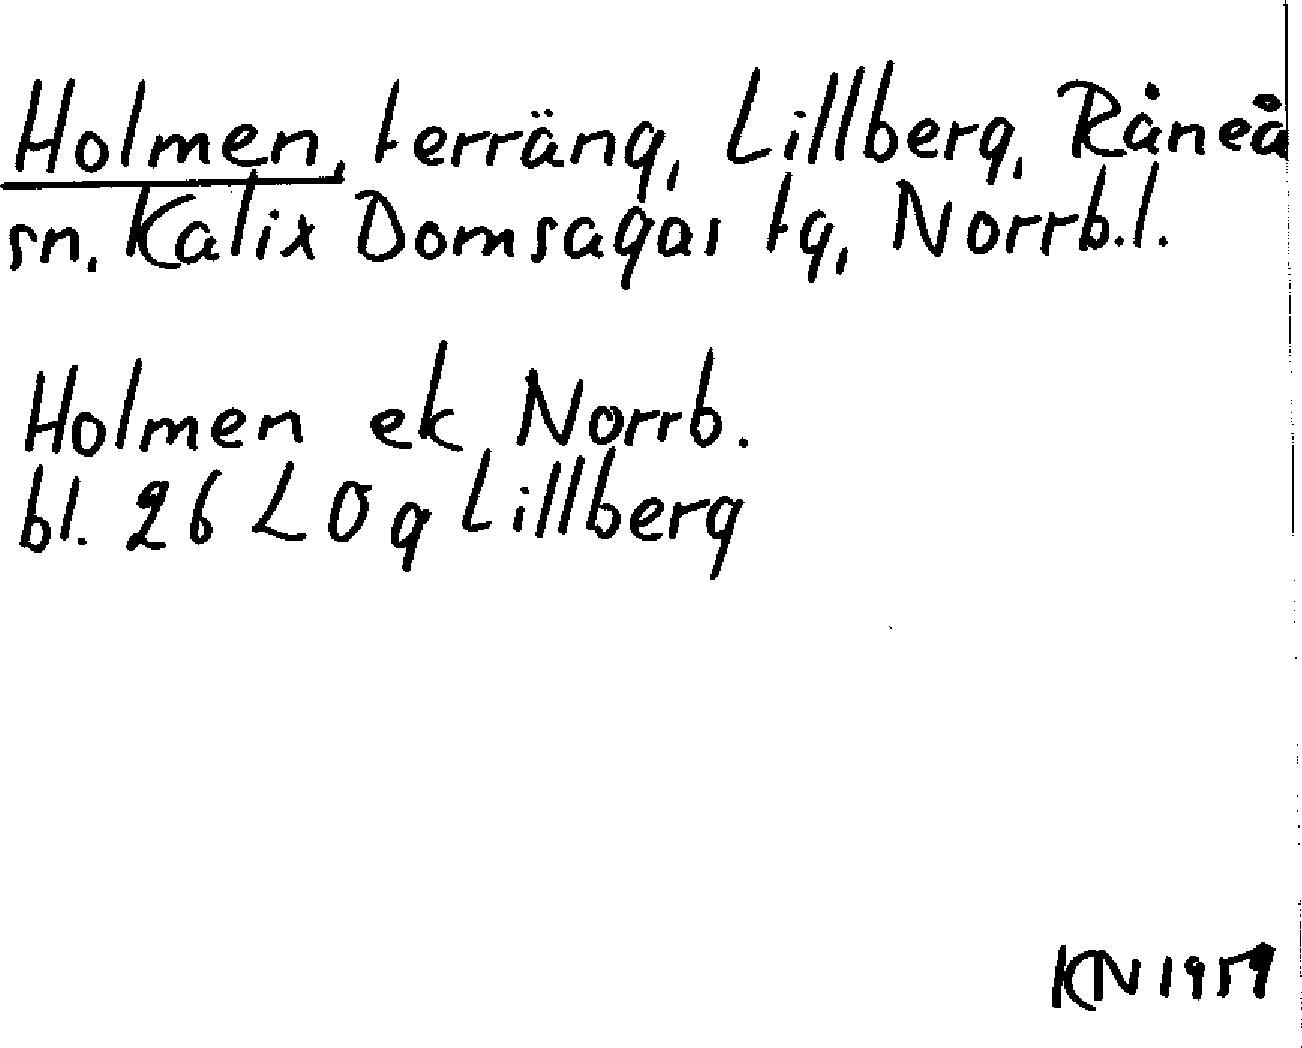 Holmen, terräng, Lillberg, Råneå
sn, Kalix Domsagas tg, Norrb.l.
Holmen ek Norrb.
bl. 26 L 0 g Lillberg
KN 1959